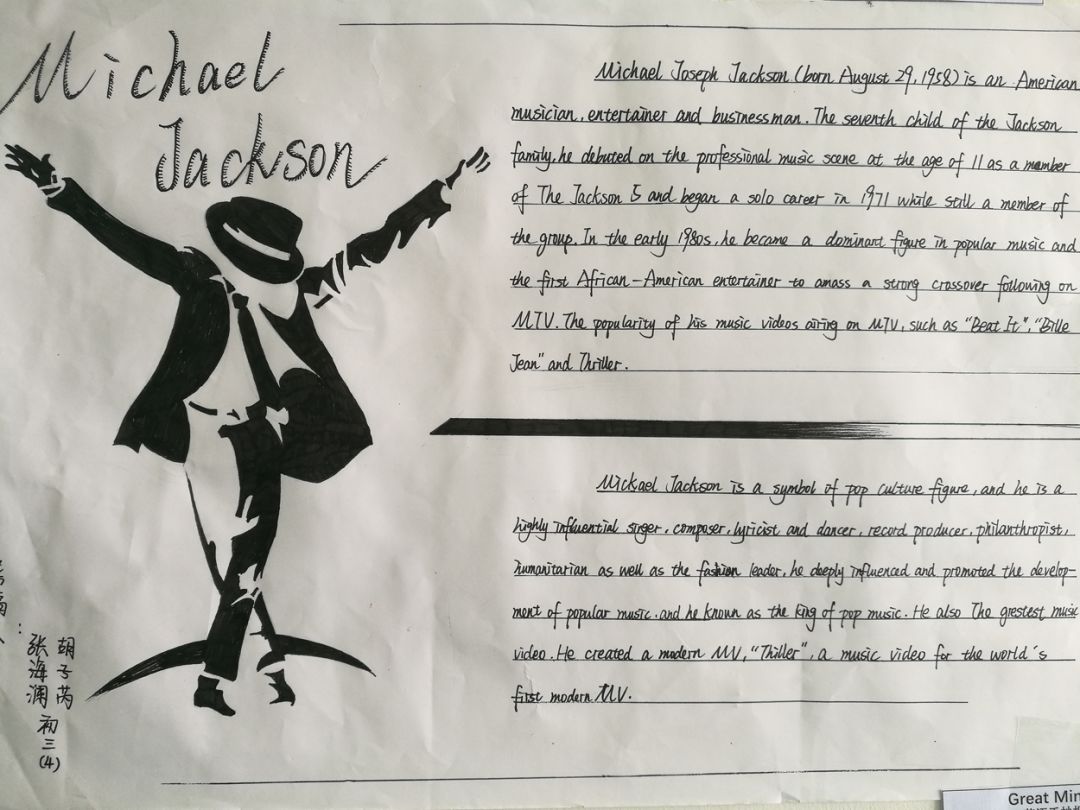 Michael
Jackson
Michael Joseph Jackson (born August 29, 1958) is an American
musician, entertainer and businessman. The seventh child of the Jackson
family, he debuted on the professional music scene at the age of 11 as a member
of The Jackson 5 and began a solo career in 1971 while still a member of
the group. In the early 1980s, he became a dominant figure in popular music and
the first African-American entertainer to amass a strong crossover following on
MTV. The popularity of his music videos airing on MTV, such as "Beat It", "Bille
Jean" and Thriller.
Mickael Jackson is a symbol of pop culture figure, and he is a
highly influential singer, composer, lyricist and dancer, record producer, philanthropist,
humanitarian as well as the fashion leader, he deeply influenced and promoted the develop-
ment of popular music. and he known as the king of pop music. He also The grestest music
video. He created a modern MV, "Thiller", a music video for the world's
first modern MV.
胡子芮
张海澜
初三(4)
Great Min